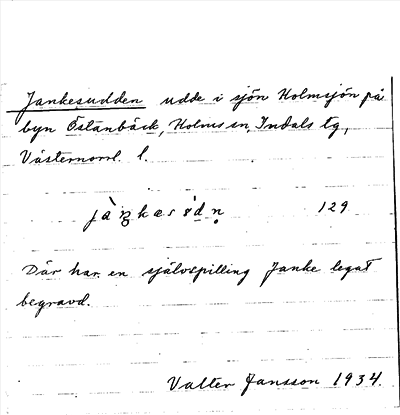 Jankesudden udde i sjön Holmsjön på
byn Östanbäck, Holms sn, Indals tg,
Västernorrl. l.
129
Där har en självspilling Janke legat
begravd.
Valter Jansson 1934.